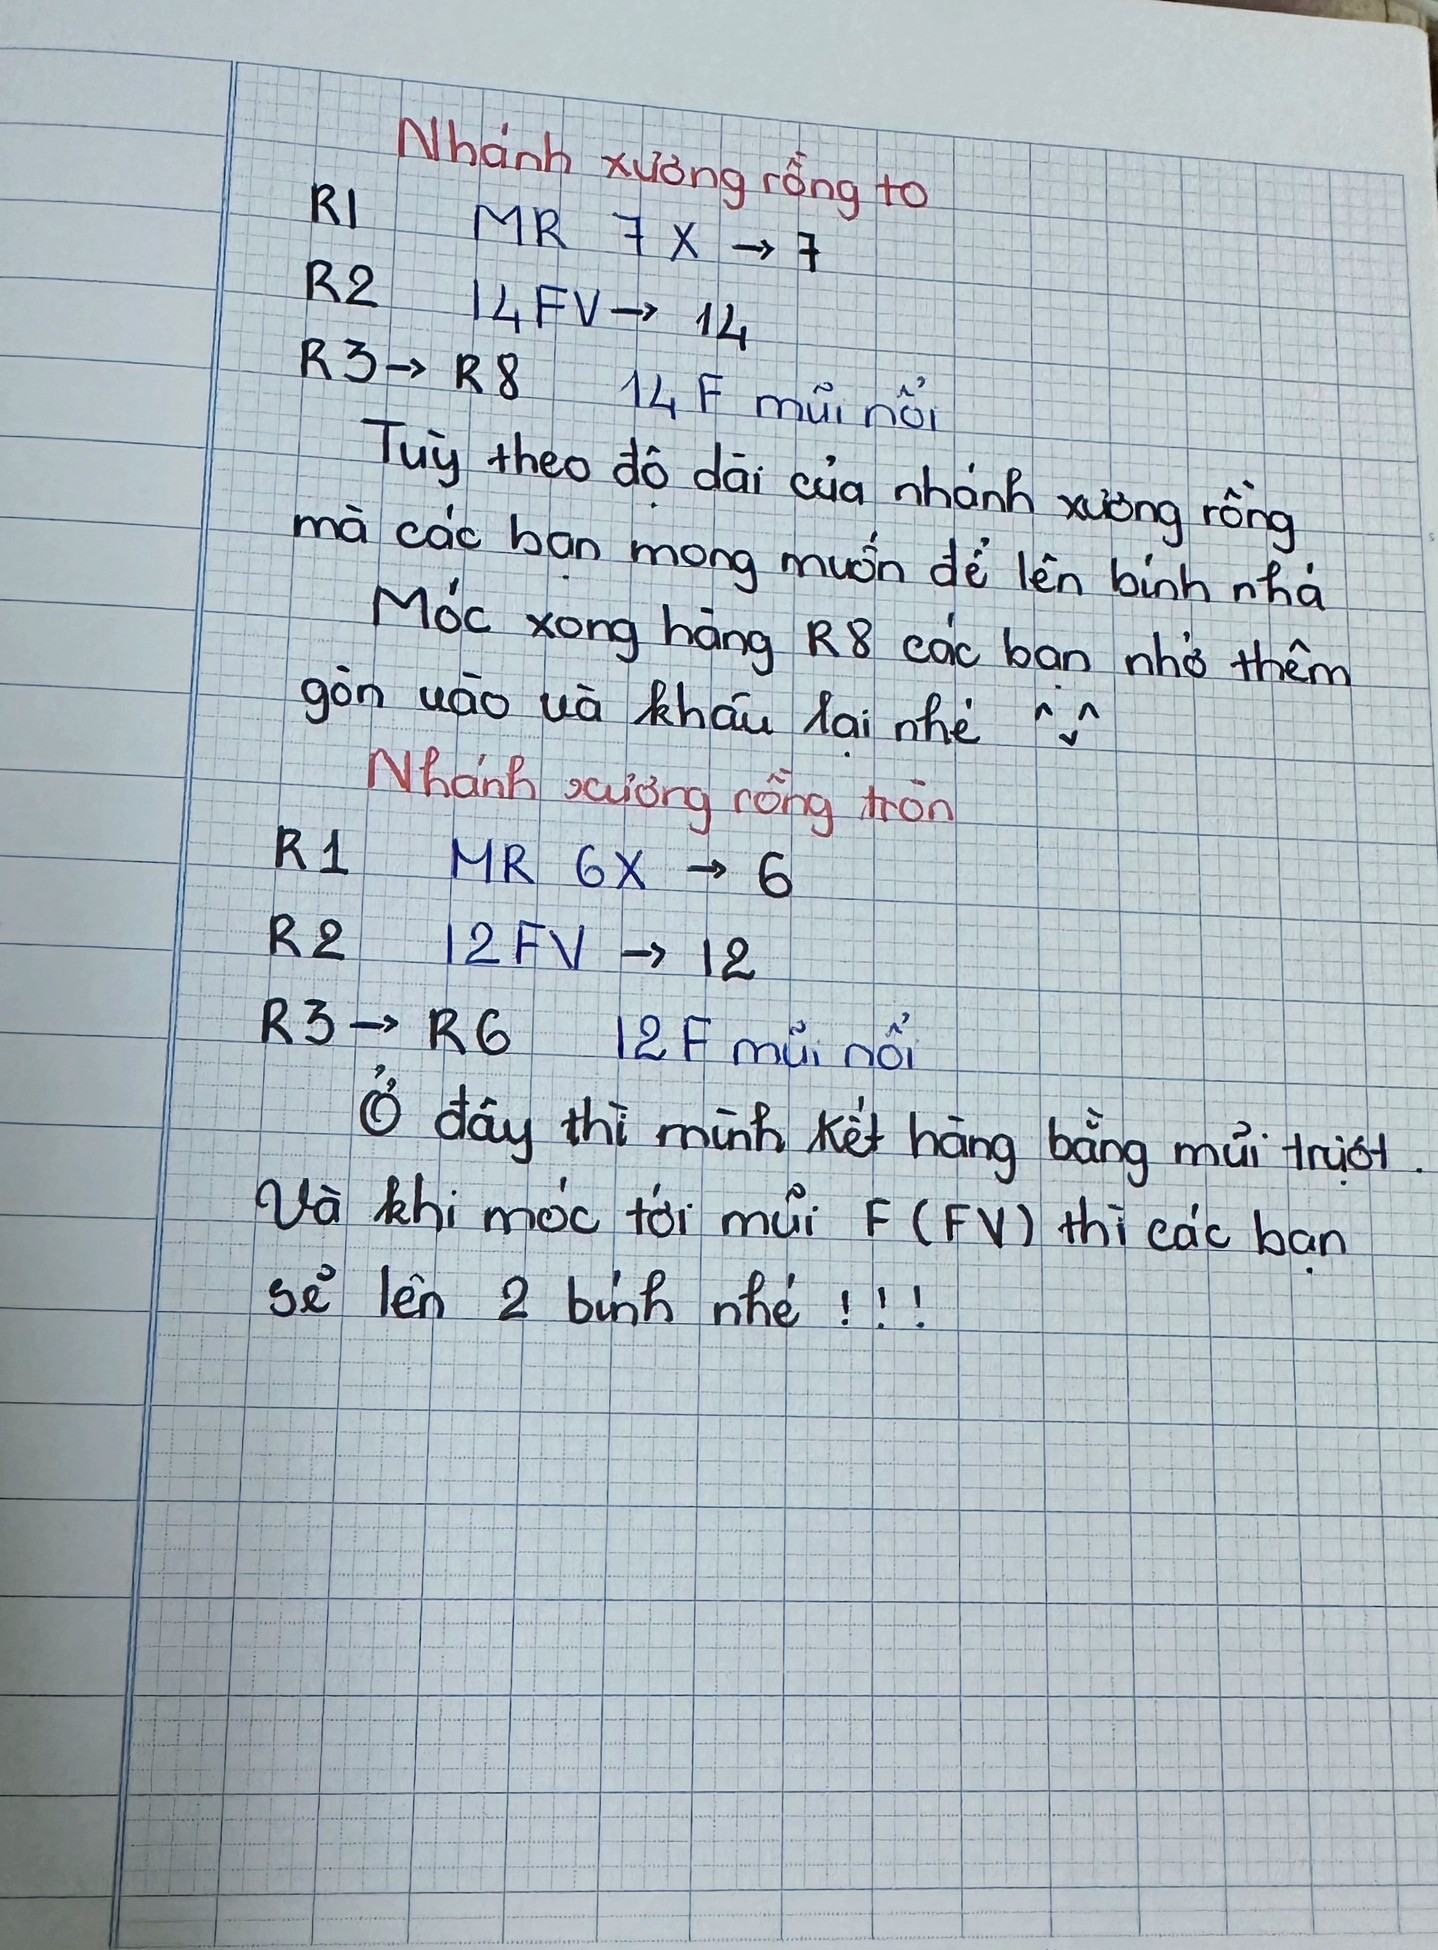 Nhánh xương rồng to
R1 MR 7X → 7
R2 14FV → 14
R3 → R8 14F mũi nổi
Tùy theo độ dài của nhánh xương rồng
mà các bạn mong muốn để lên bính nhá
Móc xong hàng R8 các bạn nhớ thêm
gòn vào và khâu lại nhé ^◡^
Nhánh xương rồng tròn
R1 MR 6X → 6
R2 12FV → 12
R3 → R6 12F mũi nổi
Ở đây thì mình kết hàng bằng mũi trượt.
Và khi móc tới mũi F (FV) thì các bạn
sẻ lên 2 bính nhé !!!